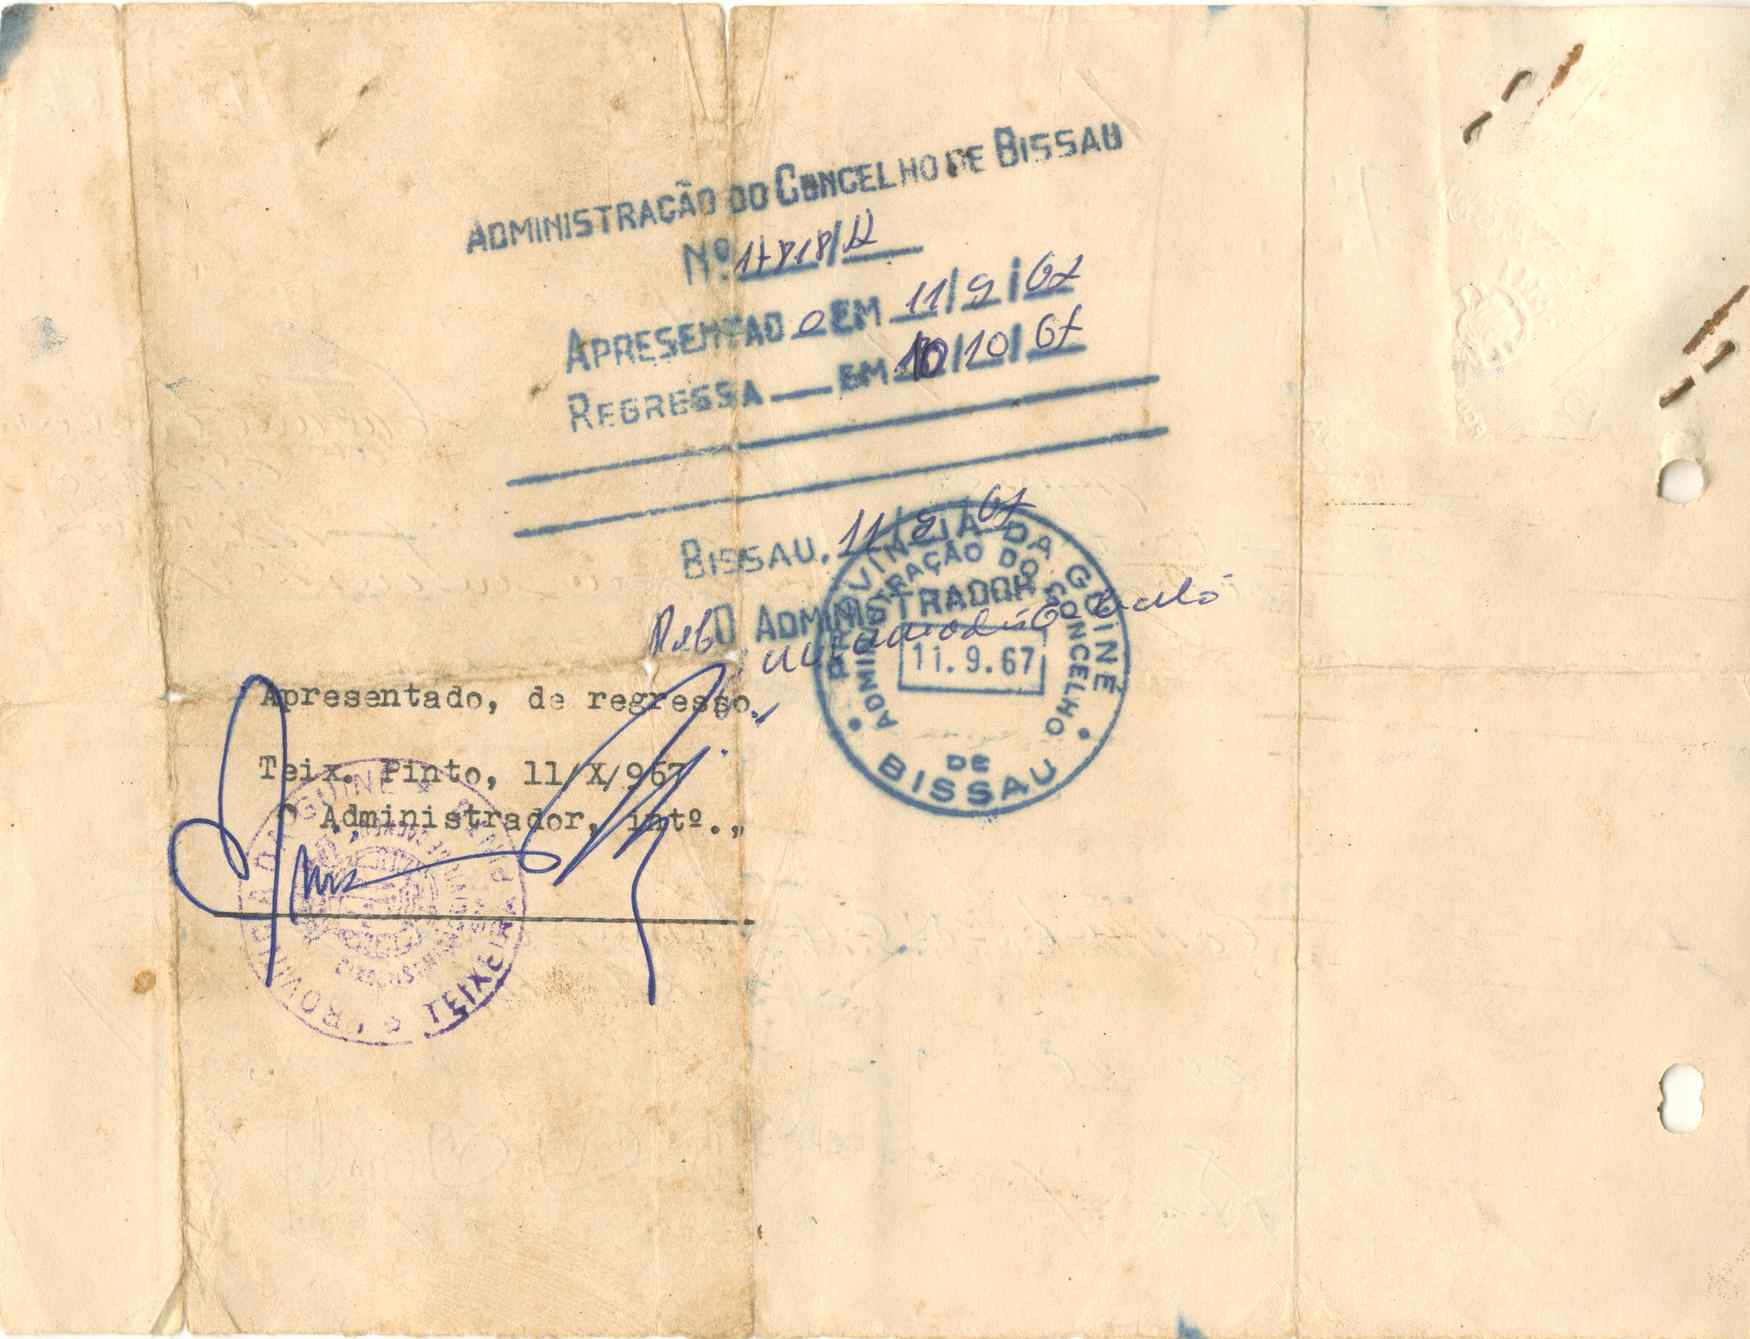 ADMINISTRAÇÃO DO CONCELHO DE BISSAU
Nº 17818/A
APRESENTADO EM 11/9/67
REGRESSA EM 10/10/67
BISSAU, 11/9/67
O ADMINISTRADOR
PROVINCIA DA GUINÉ
ADMINISTRAÇÃO DO CONCELHO
11.9.67
DE
BISSAU
Apresentado, de regresso.
Teix. Pinto, 11/X/967
O Administrador, intº.,
PROVINCIA DA GUINÉ
TEIXEIRA PINTO